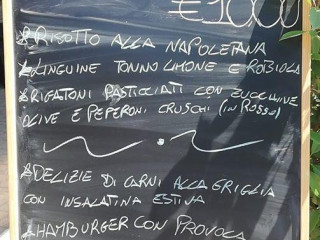 €10,00
RISOTTO ALLA NAPOLETANA
LINGUINE TONNO LIMONE E ROBIOLA
RIGATONI PASTICCIATI CON ZUCCHINE
OLIVE E PEPERONI CRUSCHI (IN ROSSO)
DELIZIE DI CARNI ALLA GRIGLIA
CON INSALATINA ESTIVA
HAMBURGER CON PROVOLA